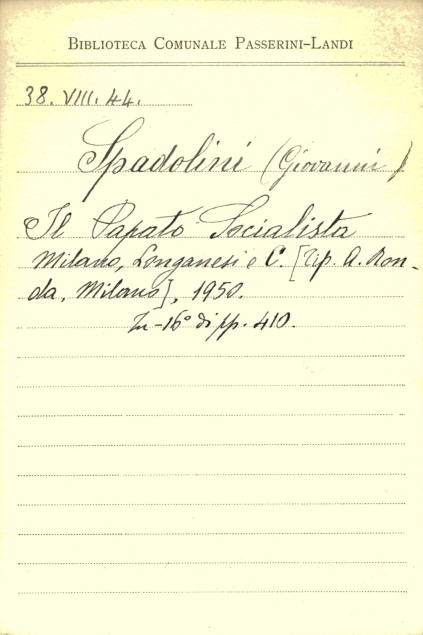 BIBLIOTECA COMUNALE PASSERINI-LANDI
38. VIII. 44.
Spadolini (Giovanni)
Il Papato Socialista
Milano, Longanesi e C. [Tip. A. Ron-
da, Milano], 1950.
In-16° di pp. 410.